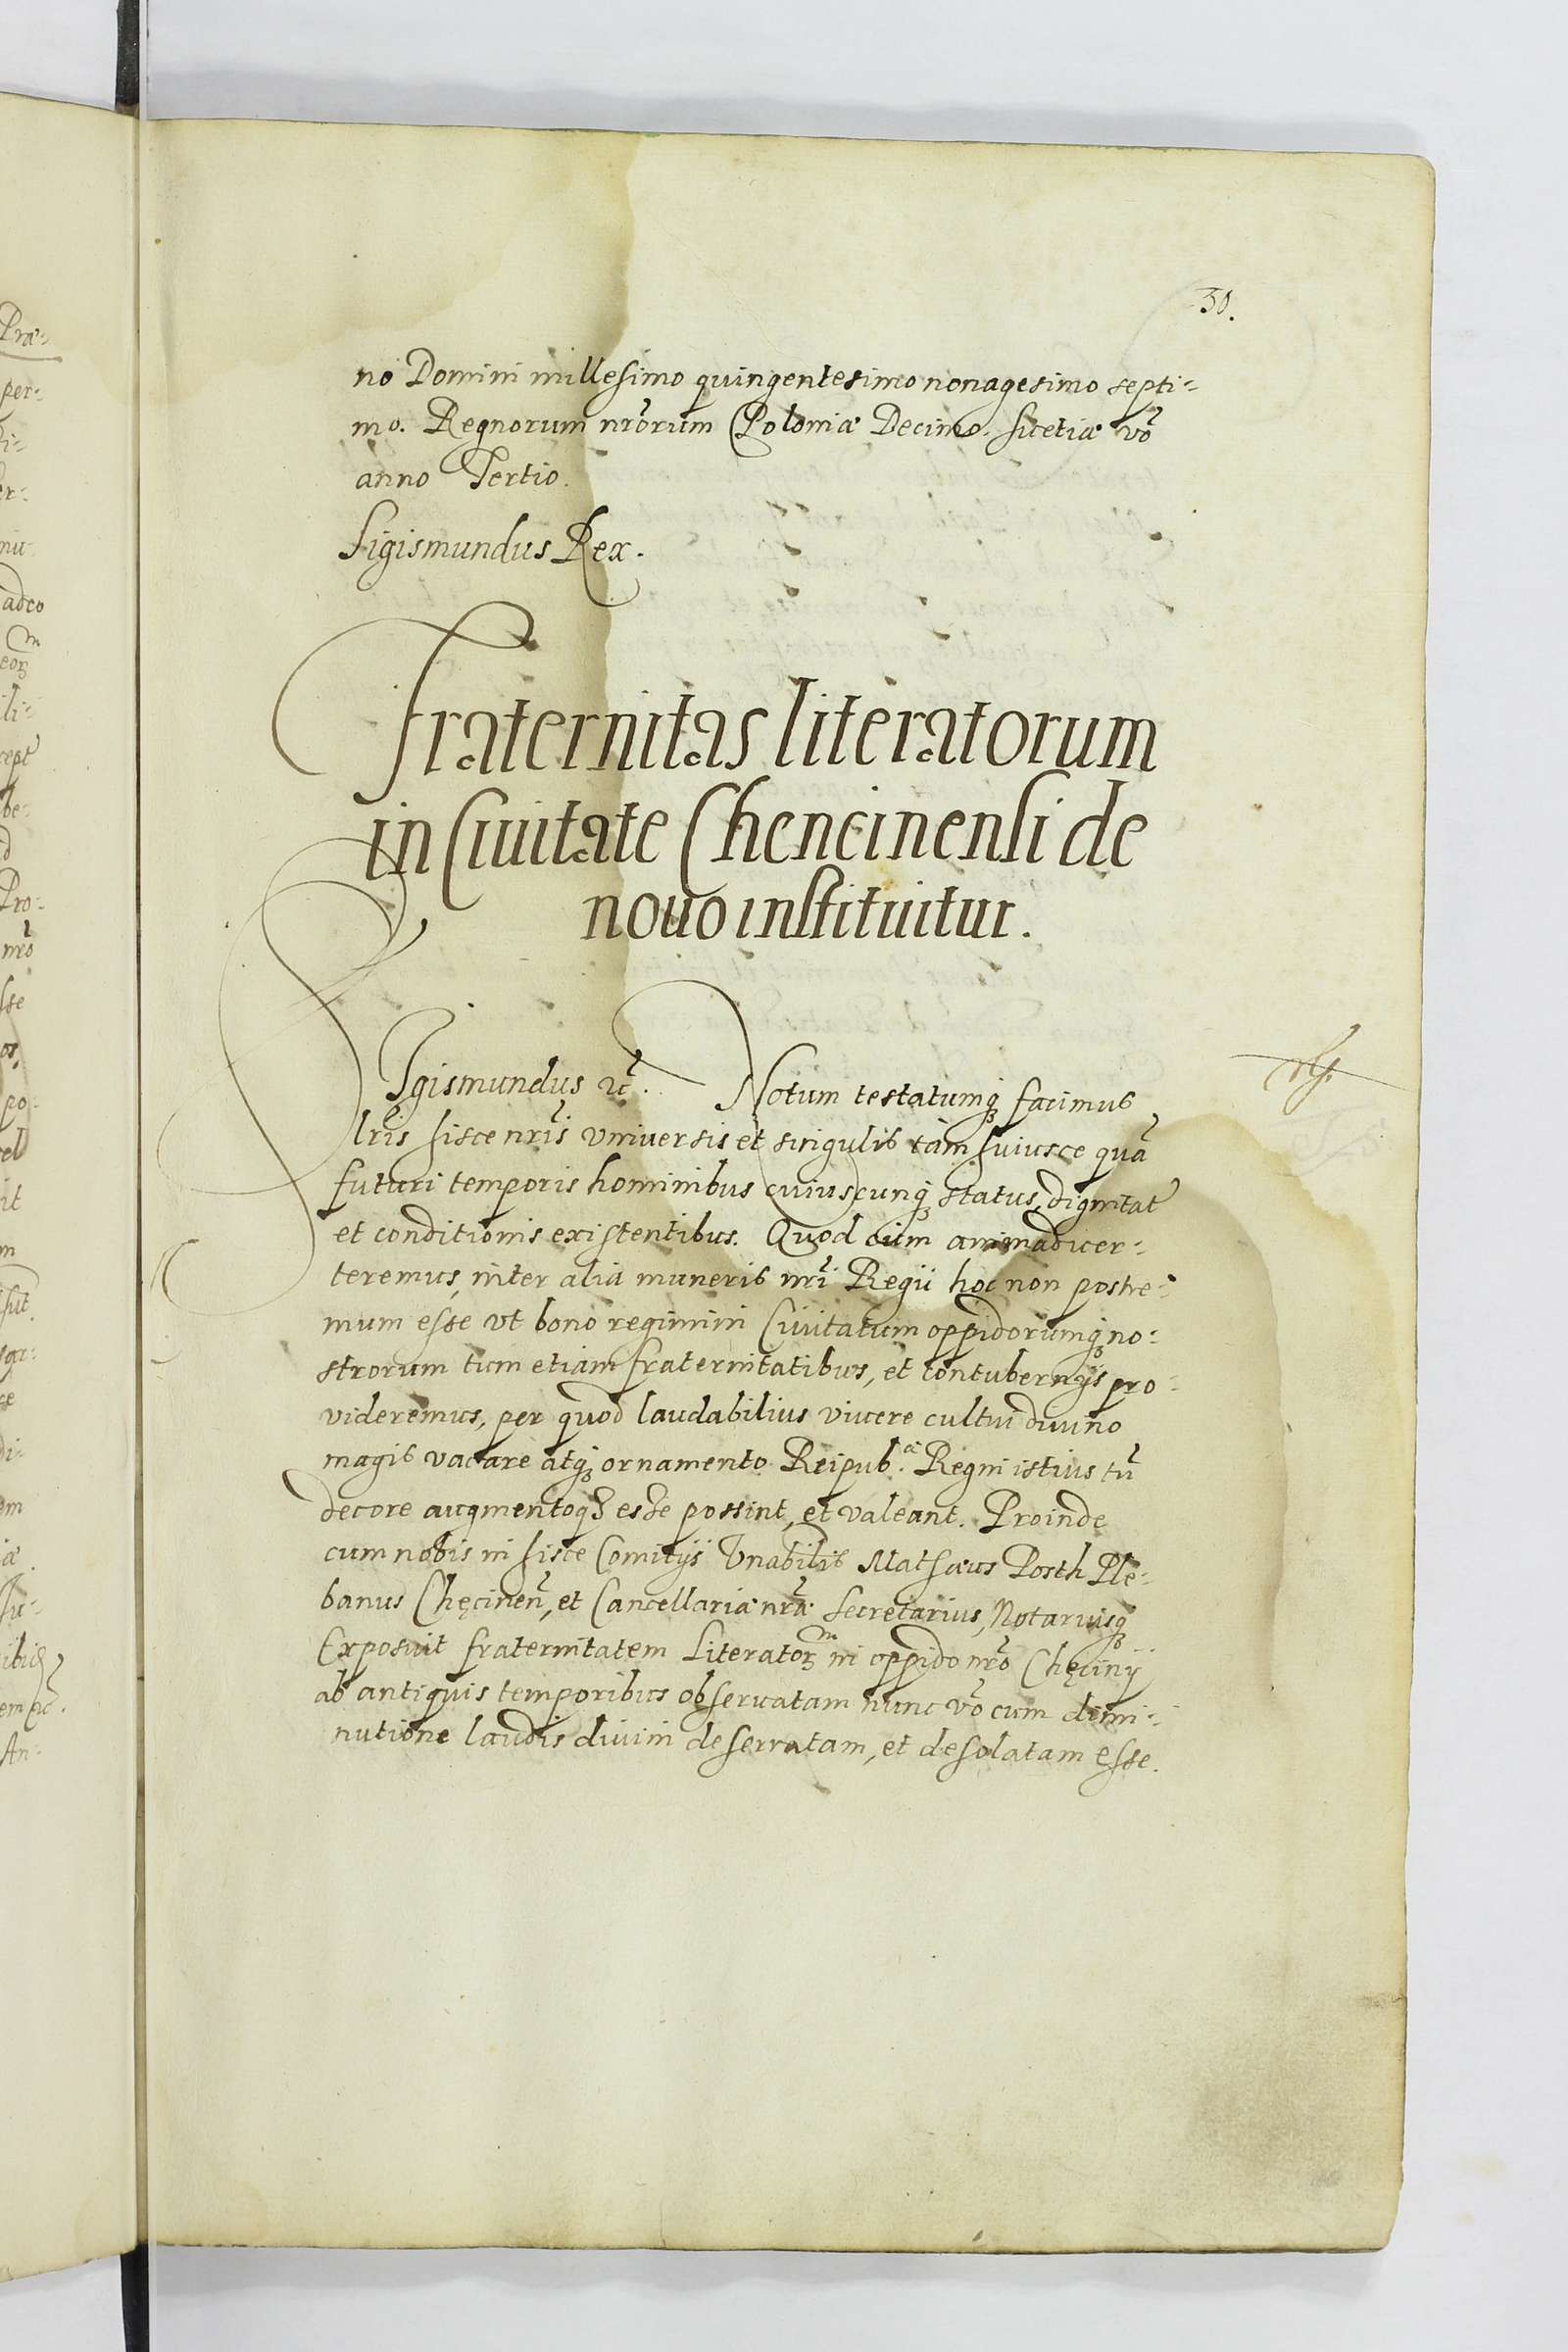 30.
no Domini millesimo quingentesimo nonagesimo septi-
mo. Regnorum nr̃orum Poloniæ Decimo. Suetiæ vo̊
anno Tertio.
Sigismundus Rex.
Fraternitas literatorum
in Ciuitate Chencinensi de
nouo instituitur.
SIgismundus etc̃. Notum testatumq̃ facimus
lr̃is hisce nr̃is vniuersis et singulis tàm huiusce quã
futuri temporis hominibus cuiuscunq̃ status, dignitat
et conditionis existentibus. Quod cùm animaduer-
teremus, inter alia muneris nr̃i Regii hoc non postre-
mum esse vt bono regimini Ciuitatum oppidorumq̃ no-
strorum tum etiam fraternitatibus, et contubernijs pro-
videremus, per quod laudabilius viuere cultui diuino
magis vacare atq̃ ornamento Reipub.æ Regni istius tũ
decore augmentoq̃ esse possint, et valeant. Proinde
cum nobis in hisce Comitijs Vnabilis Mathæus Posth Ple-
banus Chęcinen̄, et Cancellariæ nr̃æ Secretarius, Notariusq̃
Exposuit fraternitatem Literatorm in oppido nr̃o Chęcinij
ab antiquis temporibus obseruatam nunc vo̊ cum dimi-
nutione laudis diuini deserratam, et desolatam esse.
Præ-
per-
adeo
li-
cept
be-
Pro-
nr̃o
sse
po-
vel
it
di-
An-